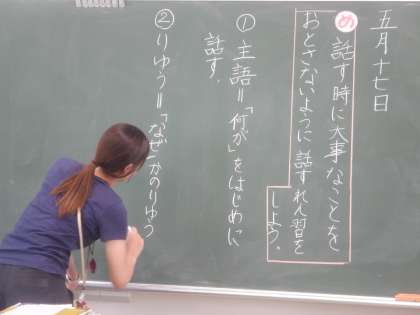 五月十七日
め 話す時に大事なことを
おとさないように話すれん習を
しよう。
① 主語=「何が」をはじめに
話す。
② りゆう=「なぜ」かのりゆう